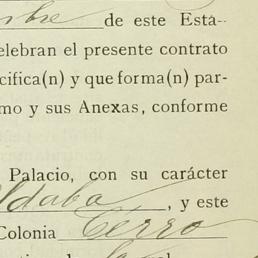 de este Esta-
elebran el presente contrato
cifica(n) y que forma(n) par-
mo y sus Anexas, conforme
Palacio, con su carácter
ldaba, y este
Colonia Cerro